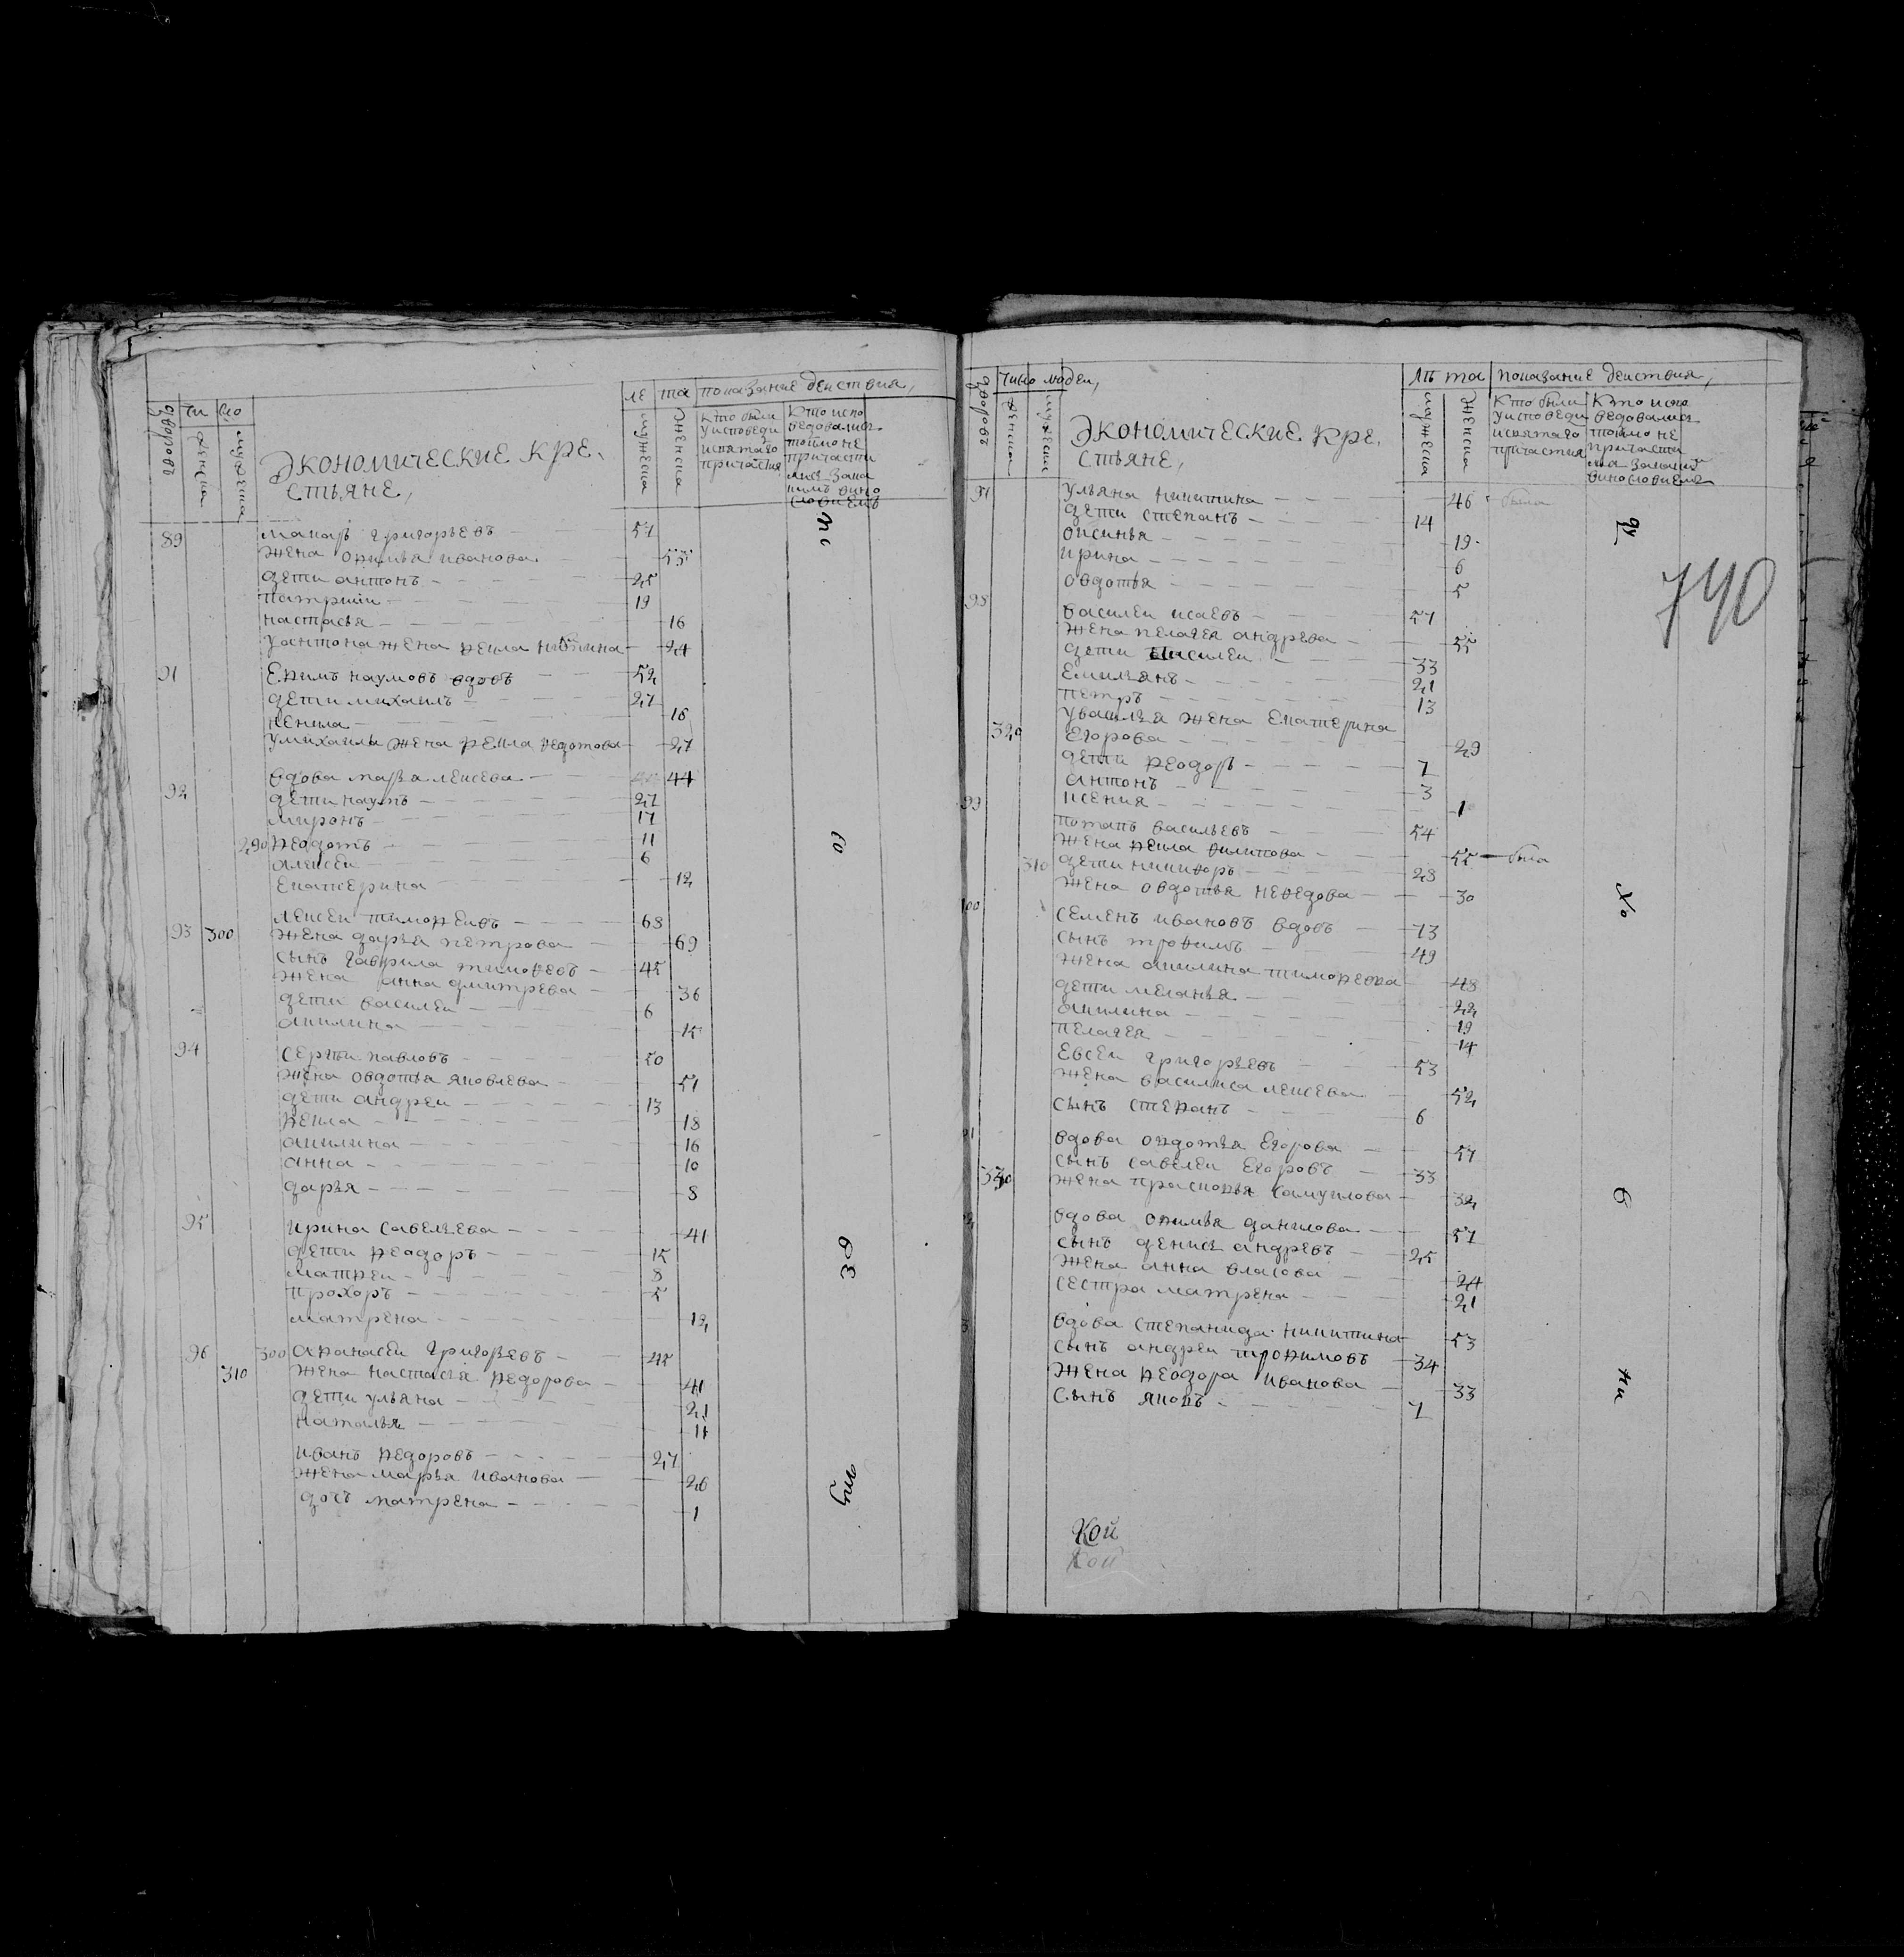 ле та показание деиствия,
дворовъ
чи сло
женска
мужеска
экономические кре
стьяне,
мужеска
женска
кто были
у исповеди
и святаго
причастия
кто испо
ведовались
токмо не
причасти
лись и зака
кимъ вино
словиемъ
89 макаръ григорьевъ 57
жена офимья иванова 55
дети антонъ 25
патрикии 19
настасья 16
у антона жена фекла 24
91 ефимъ наумовъ вдовъ 52
дети михаилъ 27
ненила 16
у михаила жена фекла федотова 27
вдова марья алексева 44
92 дети наумъ 27
миронъ 17
290 федотъ 11
алексеи 6
екатерина 12
алексеи тимофеивъ 68
93 300 жена дарья петрова 69
сынъ гаврила тимофевъ 45
жена анна дмитрева 36
дети василеи 6
акилина 15
94 сергеи павловъ 50
жена овдотья яковлева 51
дети андреи 13
фекла 18
акилина 16
анна 10
дарья 8
95 ирина савельева 41
дети феодоръ 15
матфеи 8
прохоръ 5
матрена 12
96 300 афанасеи григорьевъ 45
310 жена настасья федорова 41
дети ульяна 21
наталья 11
иванъ федоровъ 27
жена марья иванова 26
дочь матрена 1
дворовъ
число людеи,
женска
мужеска
экономические кре
стьяне,
лѣ та показание деиствия,
мужеска
женска
кто были
у исповеди
и святаго
причастия
кто испо
ведовались
токмо не
причасти
97 ульяна никитина 46 была
дети степанъ 14
оксинья 19
ирина 6
овдотья 5
98 василеи исаевъ 57
жена пелагея андрева 55
дети василеи 33
емильянъ 21
петръ 13
у василья жена екатерина
320 егорова 29
дети феодоръ 7
антонъ 3
99 ксения 1
потапъ васильевъ 54
жена фекла филипова 55 была
310 дети никифоръ 28
жена овдотья нефедова 30
100 семенъ ивановъ вдовъ 73
сынъ трофимъ 49
жена акилина тимофеева 48
дети меланья 22
акилина 19
пелагея 14
евсеи григорьевъ 53
жена василиса алексева 52
сынъ стефанъ 6
вдова овдотья егорова 57
сынъ савелеи егоровъ 33
жена прасковья самуилова 32
вдова офимья данилова 57
сынъ денисъ андревъ 25
жена анна власова 24
сестра матрена 21
вдова степанида никитина 53
сынъ андреи трофимовъ 34
жена феодора иванова 33
сынъ яковъ 7
740
Кой
Кой